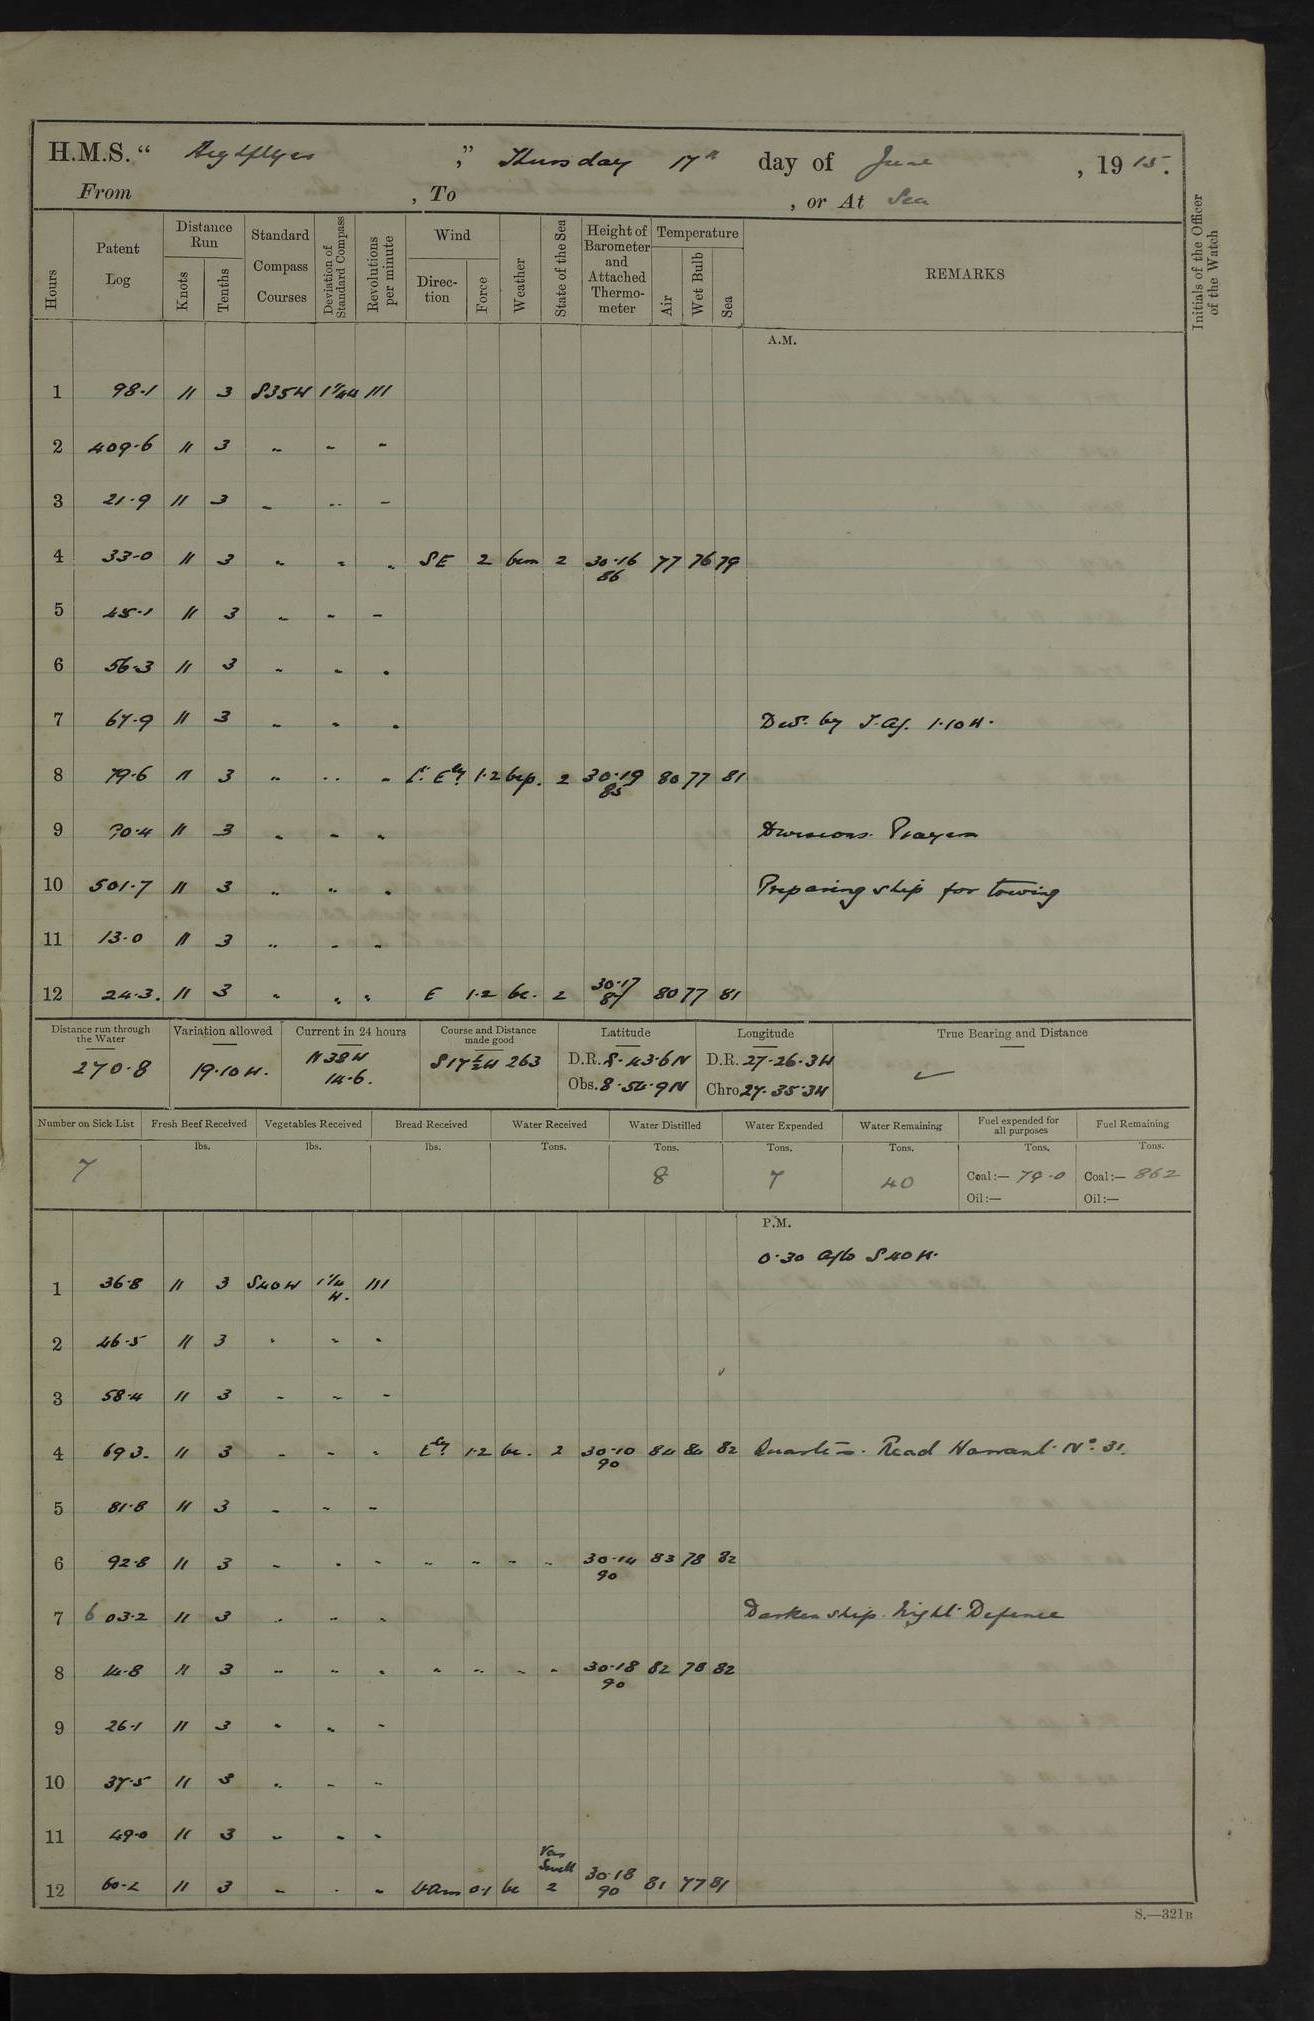 H.M.S. " Highflyer " Thursday 17th day of June , 1915.
From , To , or At Sea
Hours Patent Log Distance Run Knots Tenths Standard Compass Courses Deviation of Standard Compass Revolutions per minute Wind Direc-tion Force Weather State of the Sea Height of Barometer and Attached Thermo-meter Temperature Air Wet Bulb Sea REMARKS Initials of the Officer of the Watch
A.M.
1 98.1 11 3 S35W 1¼W 111
2 409.6 11 3 " " "
3 21.9 11 3 " " "
4 33.0 11 3 " " " SE 2 bcm 2 30.16 77 76 79
86
5 45.1 11 3 " " "
6 56.3 11 3 " " "
7 67.9 11 3 " " " Dev. by T. Az. 1.10 W.
8 79.6 11 3 " " " Ely 1.2 bcp. 2 30.19 80 77 81
85
9 90.4 11 3 " " " Divisions. Prayers
10 501.7 11 3 " " " Preparing ship for towing
11 13.0 11 3 " " "
12 24.3. 11 3 " " " E 1.2 bc. 2 30.17 80 77 81
87
Distance run through the Water Variation allowed Current in 24 hours Course and Distance made good Latitude Longitude True Bearing and Distance
270.8 19.10 W. N38W 14.6. S17½W 263 D.R. 8.43.6N D.R. 27.26.3W
Obs. 8.54.9N Chro 27.35.3W
Number on Sick List Fresh Beef Received Vegetables Received Bread Received Water Received Water Distilled Water Expended Water Remaining Fuel expended for all purposes Fuel Remaining
lbs. lbs. lbs. Tons. Tons. Tons. Tons. Tons. Tons.
7 8 7 40 Coal:— 79.0 Coal:— 862
Oil:— Oil:—
P.M.
0.30 a/c S40W.
1 36.8 11 3 S40W 1¼ W. 111
2 46.5 11 3 " " "
3 58.4 11 3 " " "
4 69 3. 11 3 " " " Ely 1.2 bc. 2 30.10 84 80 82 Quarters. Read Warrant No. 31.
90
5 81.8 11 3 " " "
6 92.8 11 3 " " " " " " " 30.14 83 78 82
90
7 603.2 11 3 " " " Darken ship. Night Defence
8 14.8 11 3 " " " " " " " 30.18 82 78 82
90
9 26.1 11 3 " " "
10 37.5 11 3 " " "
11 49.0 11 3 " " "
12 60.2 11 3 " " " 0.1 bc Swell 2 30.18 81 77 81
90
S.—321B